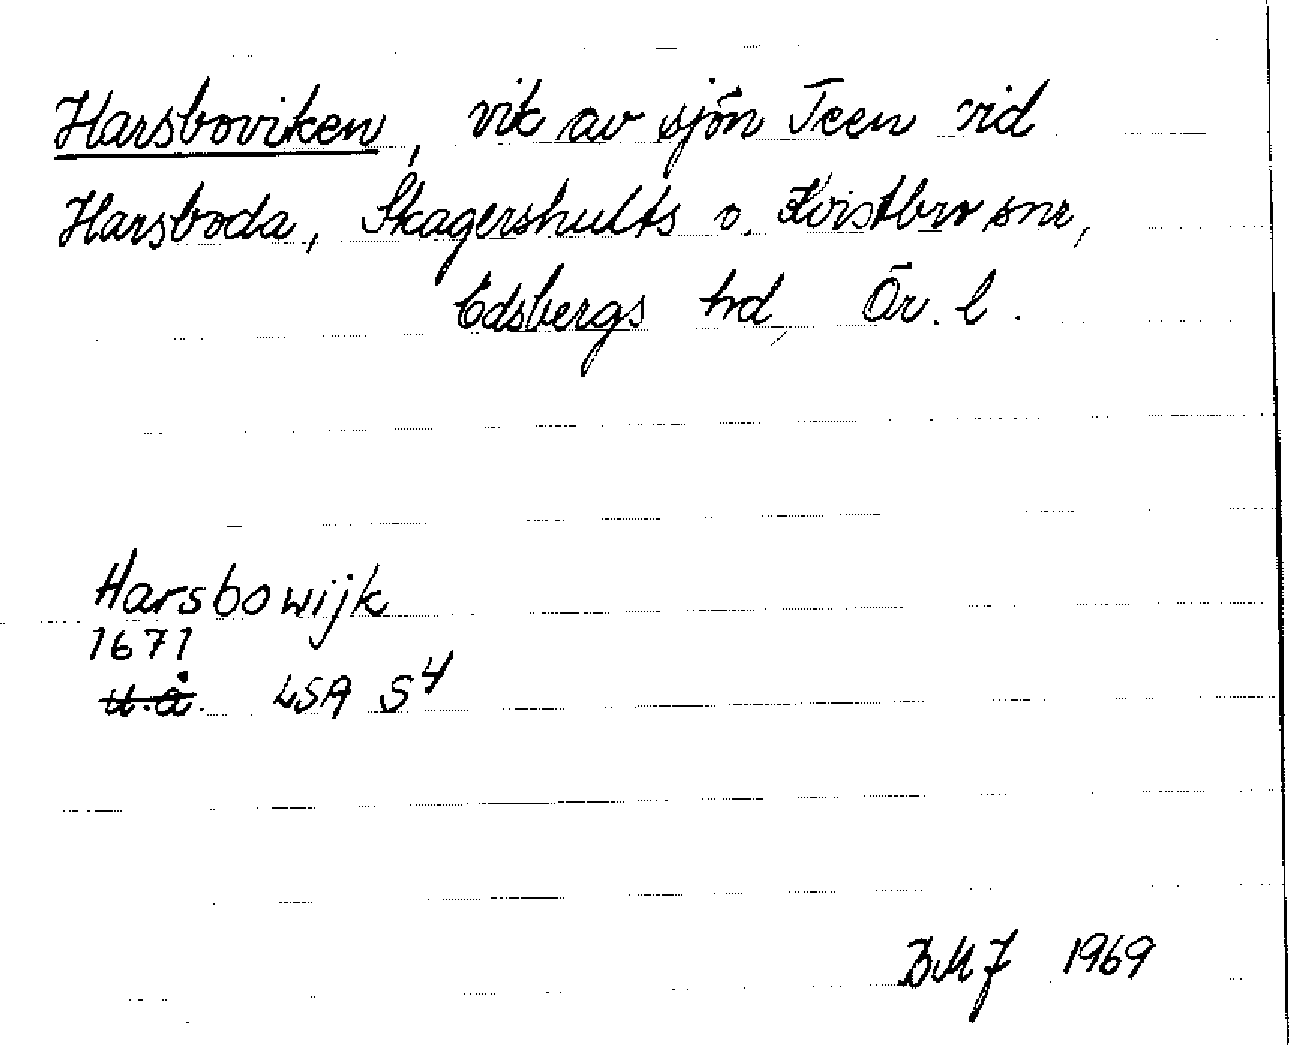 Harsboviken, vik av sjön Teen vid
Harsboda, Skagershults o. Kvistbro snr,
Edsbergs hd, Ör. l.
Harsbowijk
1671
u.å. LSA S4
BMJ 1969